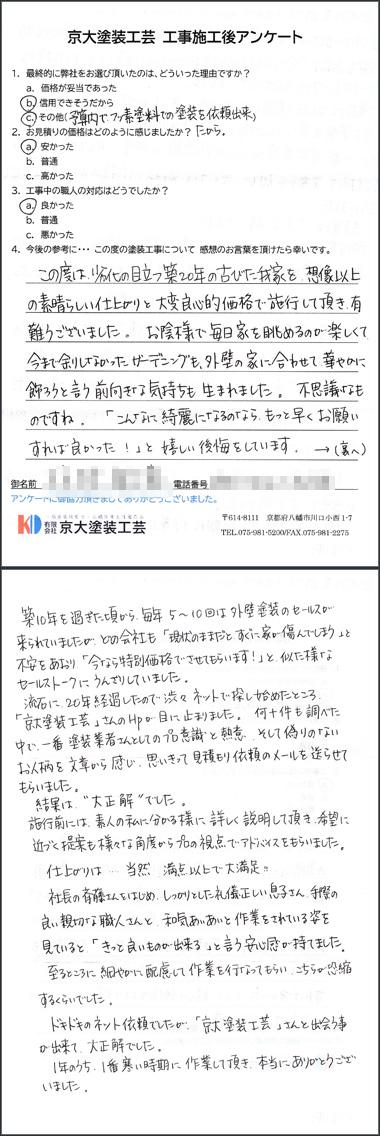 京大塗装工芸 工事施工後アンケート
1. 最終的に弊社をお選び頂いたのは、どういった理由ですか？
a. 価格が妥当であった
b. 信用できそうだから
c. その他(予算内でフッ素塗料での塗装を依頼出来)
たから。
2. お見積りの価格はどのように感じましたか？
a. 安かった
b. 普通
c. 高かった
3. 工事中の職人の対応はどうでしたか？
a. 良かった
b. 普通
c. 悪かった
4. 今後の参考に・・・ この度の塗装工事について 感想のお言葉を頂けたら幸いです。
この度は、劣化の目立つ築20年の古びた我家を、想像以上
の素晴らしい仕上がりと大変良心的価格で施行して頂き、有
難うございました。 お陰様で毎日家を眺めるのが楽しくて
今まで余りしなかったガーデニングも、外壁の家に合わせて華やかに
飾ろうと言う前向きな気持ちも生まれました。 不思議なも
のですね。 「こんなに綺麗になるのなら、もっと早くお願い
すれば良かった！」と嬉しい後悔をしています。 →(裏へ)
御名前
電話番号
アンケートに御協力頂きましてありがとうございました。
KD 有限会社 京大塗装工芸
〒614-8111 京都府八幡市川口小西1-7
TEL.075-981-5200/FAX.075-981-2275
築10年を過ぎた頃から、毎年5～10回は外壁塗装のセールスが
来られていましたが、どの会社も「現状のままだと、すぐに家が傷んでしまう」と
不安をあおり「今なら特別価格でさせてもらいます!」と、似た様な
セールストークにうんざりしていました。
流石に、20年経過したので渋々ネットで探し始めたところ、
「京大塗装工芸」さんのHpが目に止まりました。 何十件も調べた
中で、一番 塗装業者さんとしてのプロ意識と熱意、そして偽りのない
お人柄を文章から感じ、思いきって見積もり依頼のメールを送らせて
もらいました。
結果は、"大正解"でした。
施行前には、素人の私に分かる様に詳しく説明して頂き、希望に
近づく提案も様々な角度からプロの視点でアドバイスをもらいました。
仕上がりは… 当然 満点以上で大満足!!
社長の斉藤さんをはじめ、しっかりとした礼儀正しい息子さん、手際の
良い親切な職人さんと、和気あいあいと作業をされている姿を
見ていると「きっと良いものが出来る」と言う安心感が持てました。
至るところに細やかに配慮して作業を行なってもらい、こちらが恐縮
するくらいでした。
ドキドキのネット依頼でしたが、「京大塗装工芸」さんと出会う事
が出来て、大正解でした。
1年のうち、1番寒い時期に作業して頂き、本当にありがとうござ
いました。